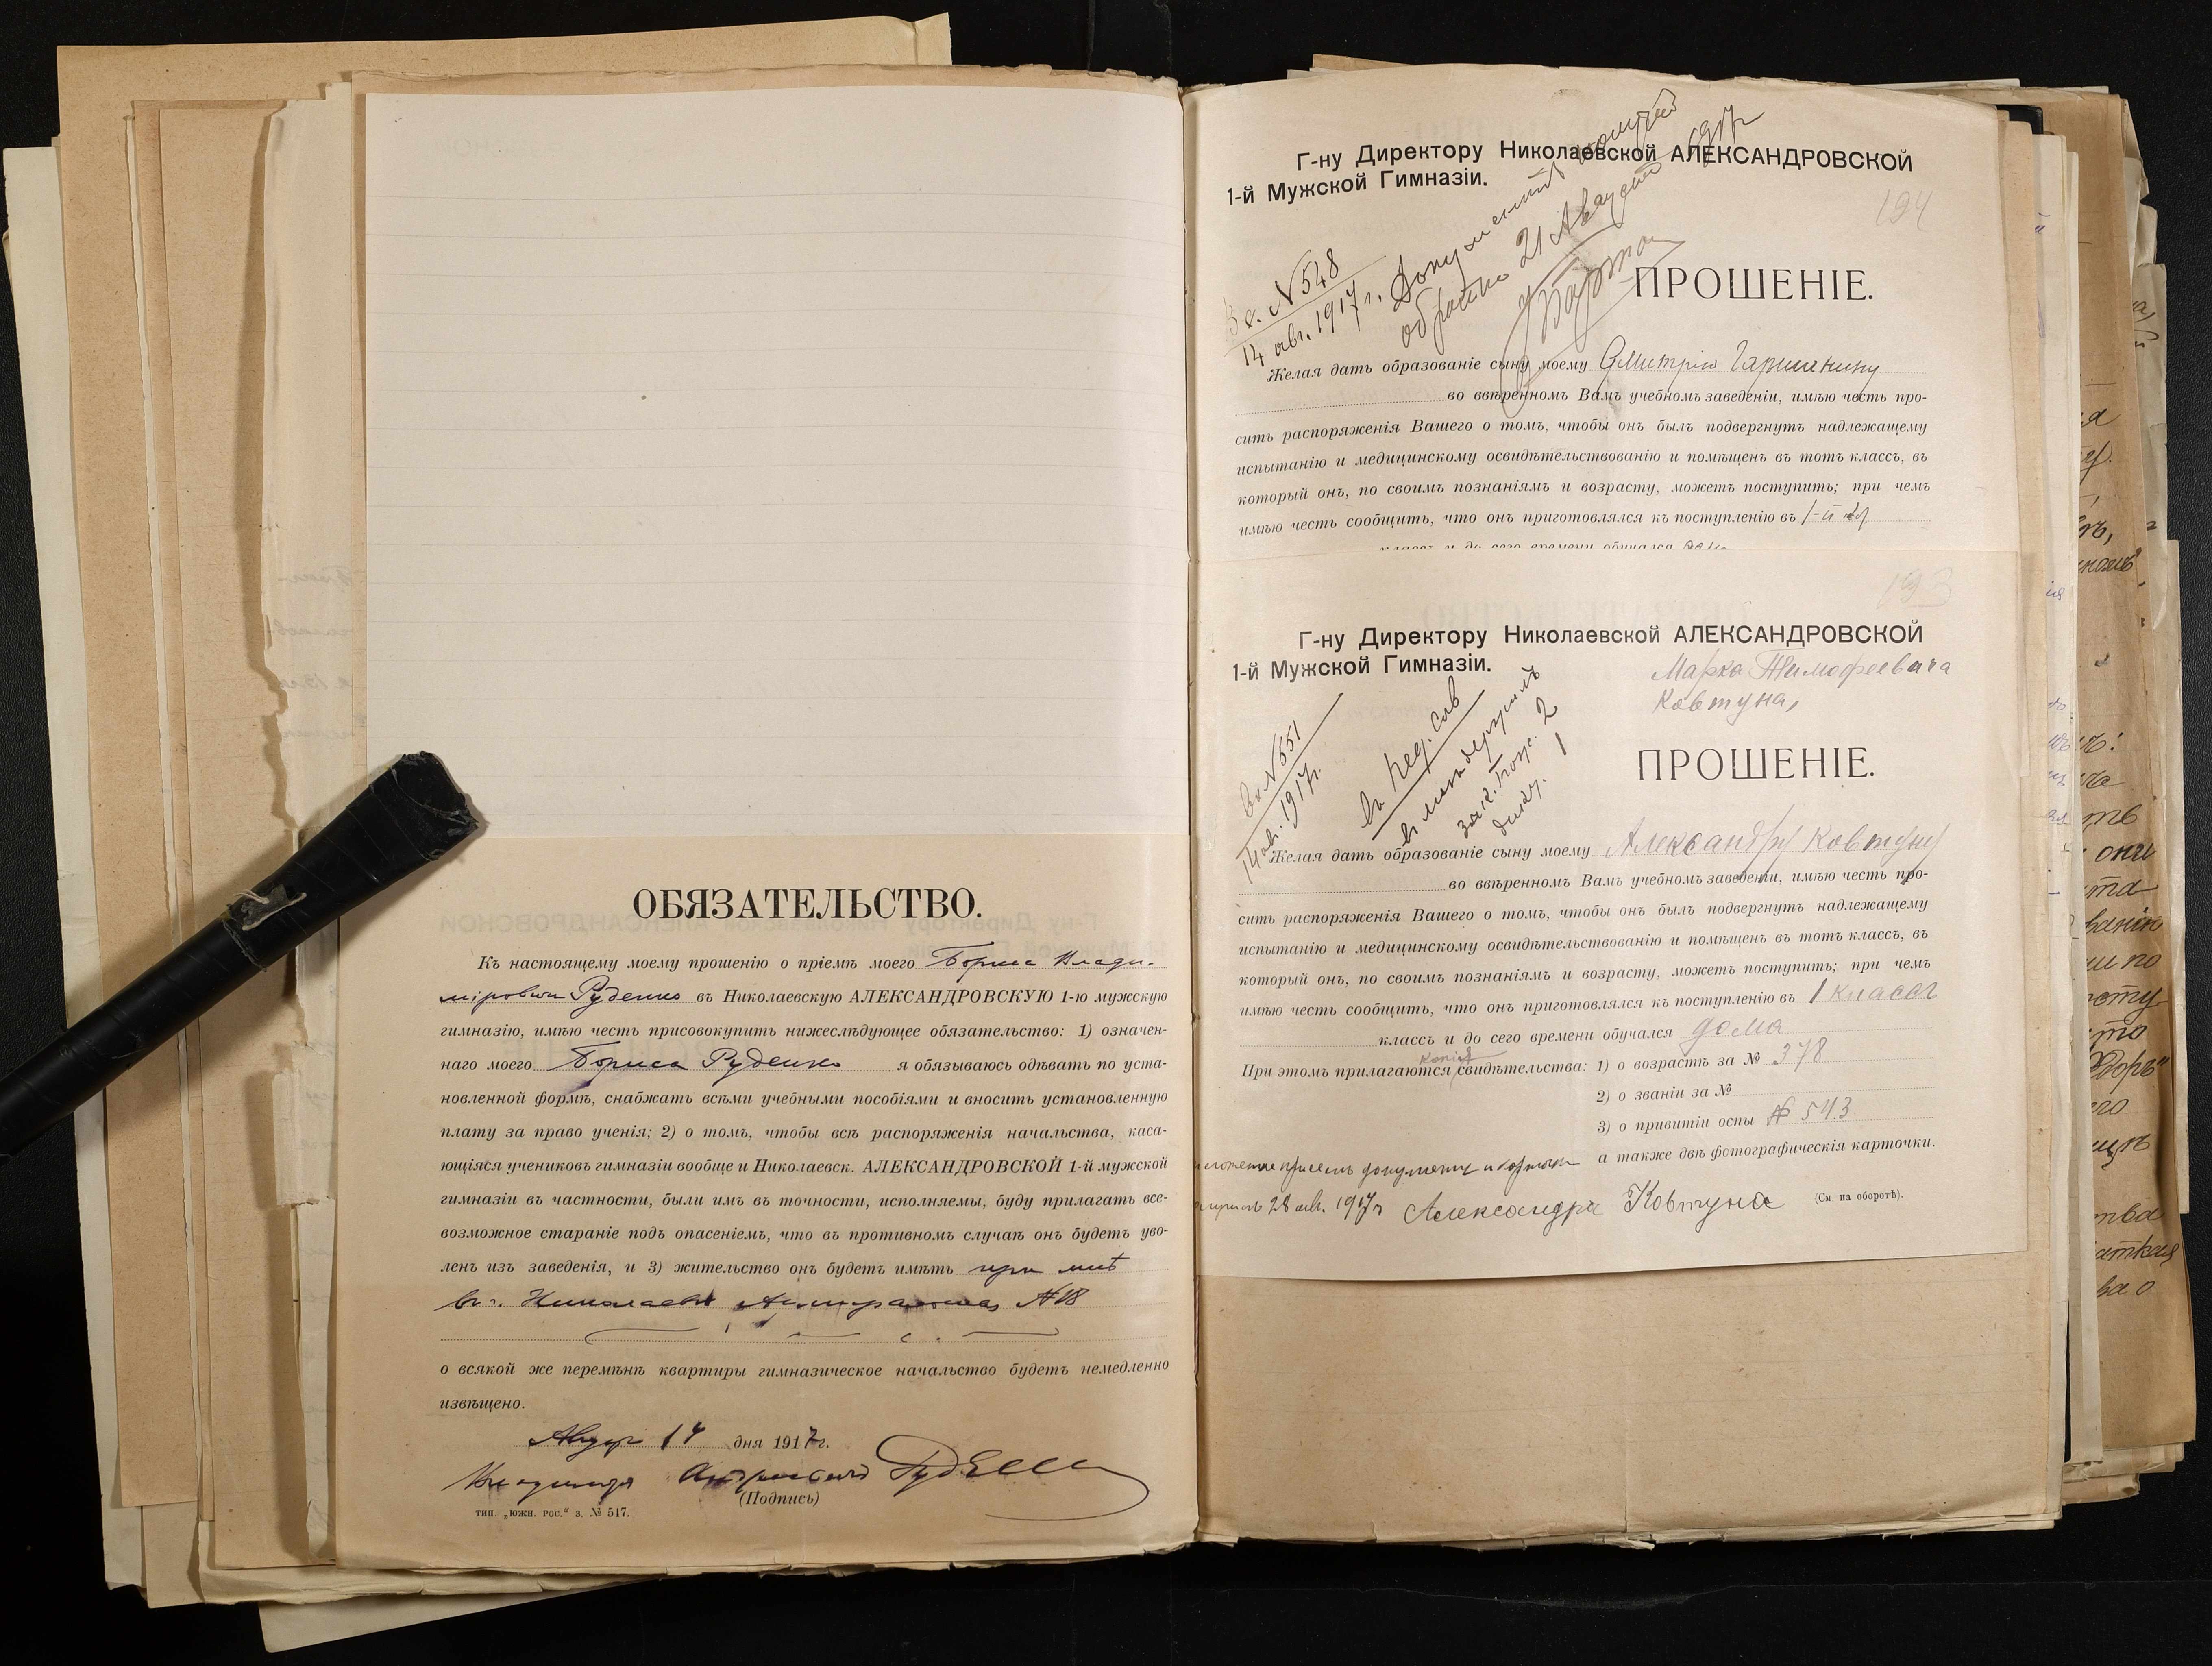 ОБЯЗАТЕЛЬСТВО.
Къ настоящему моему прошенію о пріемѣ моего Бориса Влади-
міровича Руденко въ Николаевскую АЛЕКСАНДРОВСКУЮ 1-ю мужскую
гимназію, имѣю честь присовокупить нижеслѣдующее обязательство: 1) означен-
наго моего Бориса Руденко я обязываюсь одѣвать по уста-
новленной формѣ, снабжать всѣми учебными пособіями и вносить установленную
плату за право ученія; 2) о томъ, чтобы всѣ распоряженія начальства, каса-
ющіяся учениковъ гимназіи вообще и Николаевск. АЛЕКСАНДРОВСКОЙ 1-й мужской
гимназіи въ частности, были имъ въ точности, исполняемы, буду прилагать все-
возможное стараніе подъ опасеніемъ, что въ противномъ случаѣ онъ будетъ уво-
ленъ изъ заведенія, и 3) жительство онъ будетъ имѣть при мнѣ
въ г. Николаевѣ №18
о всякой же перемѣнѣ квартиры гимназическое начальство будетъ немедленно
извѣщено.
Август 14 дня 1917 г.
Владиміръ Андреевичъ Руденко
(Подпись)
тип. „южн. рос.“ з. № 517.
Г-ну Директору Николаевской АЛЕКСАНДРОВСКОЙ
1-й Мужской Гимназіи.
194
Вх. №548
14 авг. 1917 г.
Документы получено
обратно 21 Августа 1917 г
ПРОШЕНІЕ.
Желая дать образованіе сыну моему Дмитрію Гаршенину
во ввѣренномъ Вамъ учебномъ заведеніи, имѣю честь про-
сить распоряженія Вашего о томъ, чтобы онъ былъ подвергнутъ надлежащему
испытанію и медицинскому освидѣтельствованію и помѣщенъ въ тотъ классъ, въ
который онъ, по своимъ познаніямъ и возрасту, можетъ поступить; при чемъ
имѣю честь сообщить, что онъ приготовлялся къ поступленію въ 1-й кл
классъ и до сего времени обучался дома
193
Г-ну Директору Николаевской АЛЕКСАНДРОВСКОЙ
1-й Мужской Гимназіи.
Марка Тимофеевича
Ковтуна,
Вх №551
14 авг. 1917 г.
въ пед. сов
не выдержалъ
зак. Бож. 2
дикт. 1
ПРОШЕНІЕ.
Желая дать образованіе сыну моему Александру Ковтуну
во ввѣренномъ Вамъ учебномъ заведеніи, имѣю честь про-
сить распоряженія Вашего о томъ, чтобы онъ былъ подвергнутъ надлежащему
испытанію и медицинскому освидѣтельствованію и помѣщенъ въ тотъ классъ, въ
который онъ, по своимъ познаніямъ и возрасту, можетъ поступить; при чемъ
имѣю честь сообщить, что онъ приготовлялся къ поступленію въ 1 классъ
классъ и до сего времени обучался дома
копія
При этомъ прилагаются свидѣтельства: 1) о возрастѣ за № 378
2) о званіи за №
3) о привитіи оспы № 543
а также двѣ фотографическія карточки.
документы и карточки
28 авг. 1917 г Александра Ковтуна
(См. на оборотѣ).